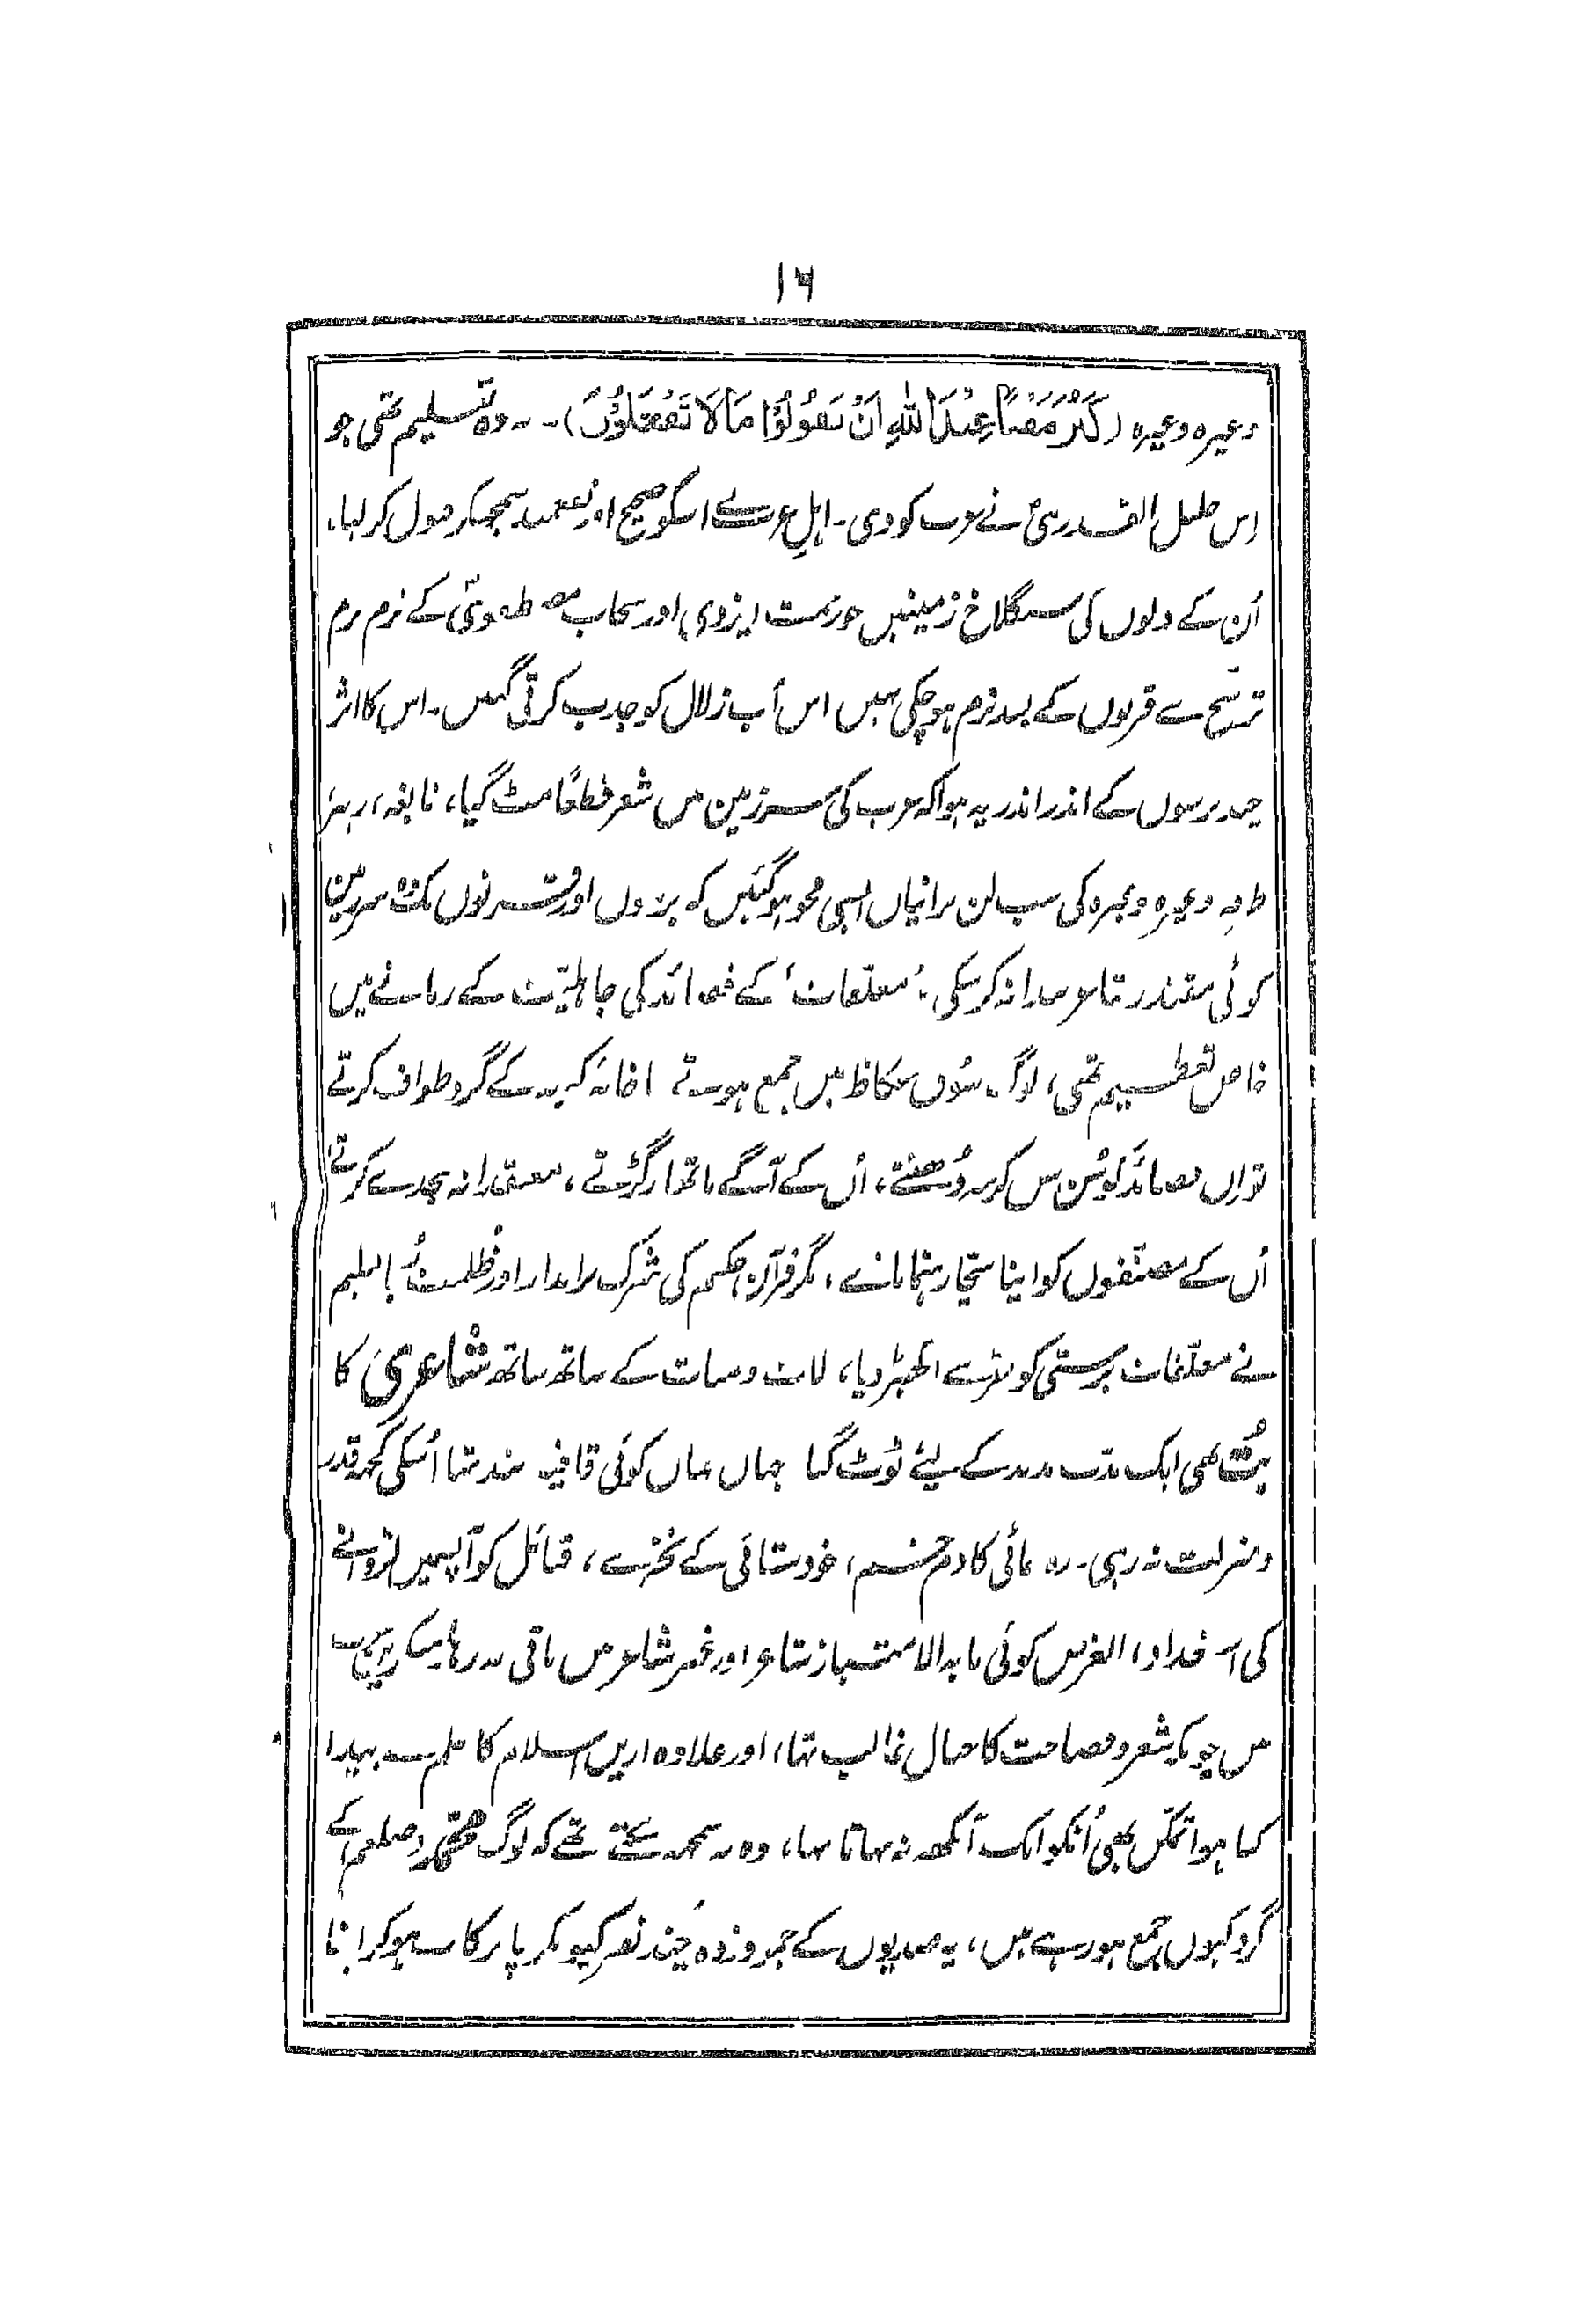 ۱۶
وغیرہ وغیرہ (كَبُرَ مَقْتًا عِنْدَ اللهِ اَنْ تَقُوْلُوْا مَا لَا تَفْعَلُوْنَ)۔ ۔ وہ تسلیم تھی جو
اِس جلیل القدر نبیؐ نے عرب کو دی۔ اہلِ عرب نے اسکو صحیح اور سمجھکر قبول کر لیا۔
اُن کے دلوں کی سنگلاخ زمینیں جو رحمت ایزدی اور سحاب مصطفویؐ کے نرم نرم
ترشح سے قرنوں کے بعد نرم ہو چکی تہیں اس آب زلال کو جذب کرتی گئیں۔ اس کا اثر
چند برسوں کے اندر اندر یہ ہوا کہ عرب کی سرزمین میں شعر قطعًا مٹ گیا، نابغہ، زہیر
طرفہ وغیرہ وغیرہ کی سب لن ترانیاں ایسی محو ہو گئیں کہ برسوں اور قرنوں تک وہ سرزمین
کوئی مقتدر شاعر پیدا نہ کر سکی۔ "معلّقات" کے قصائد کی جاہلیّت کے زمانے میں
خاص تعظیم تھی، لوگ سُوق عکاظ میں جمع ہوتے خانہ کعبہ کے گرد طواف کرتے
تو اِن قصائد کو سُن سن کر سر دُھنتے، اُن کے آگے ماتھا رگڑتے، معتقدانہ سجدے کرتے
اُن کے مصنّفوں کو اپنا سچّا رہنما مانتے، مگر قرآن حکیم کی شرک برانداز اور ظلمت رُبا تعلیم
نے معلّقات پرستی کو جڑ سے اکھیڑ دیا، لات و منات کے ساتھ ساتھ شاعری کا
بُت بھی ایک مدّت مدید کے لیئے ٹوٹ گیا جہاں جہاں کوئی قافیہ بند تہا اُسکی کچھ قدر
و منزلت نہ رہی۔ نہ کا دم خم، خودستائی کے نخرے، قبائل کو آپسمیں لڑوانے
کی استعداد، الغرض کوئی مابہ الامتیاز شاعر اور غیر شاعر میں باقی نہ رہا۔
میں چونکہ شعر و فصاحت کا خیال غالب تہا، اور علاوہ ازیں اسلام کا پیدا
کیا ہوا تمدّن بھی اُنکو ایک آنکھ نہ بہاتا تہا، وہ نہ سمجھ سکتے تھے کہ لوگ محمّد (صلعم) کے
گرد کیوں جمع ہو رہے ہیں، یہ صدیوں کے چند نفر کیونکر پا برکاب ہو کر اپنا